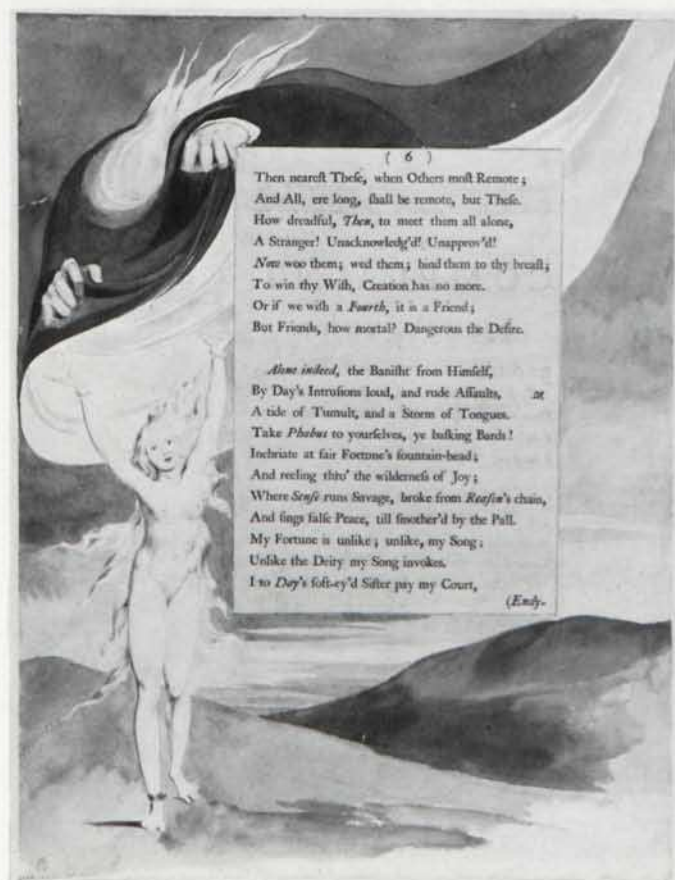 ( 6 )
Then neareſt Theſe, when Others moſt Remote ;
And All, ere long, ſhall be remote, but Theſe.
How dreadful, Then, to meet them all alone,
A Stranger! Unacknowledg'd! Unapprov'd!
Now woo them; wed them; bind them to thy breaſt;
To win thy Wiſh, Creation has no more.
Or if we wiſh a Fourth, it is a Friend ;
But Friends, how mortal? Dangerous the Deſire.
Alone indeed, the Baniſht from Himſelf,
By Day's Intruſions loud, and rude Aſſaults,
A tide of Tumult, and a Storm of Tongues.
Take Phœbus to yourſelves, ye baſking Bards !
Inebriate at fair Fortune's fountain-head ;
And reeling thro' the wilderneſs of Joy ;
Where Senſe runs Savage, broke from Reaſon's chain,
And ſings falſe Peace, till ſmother'd by the Pall.
My Fortune is unlike ; unlike, my Song ;
Unlike the Deity my Song invokes.
I to Day's ſoft-ey'd Siſter pay my Court,
(Endy-